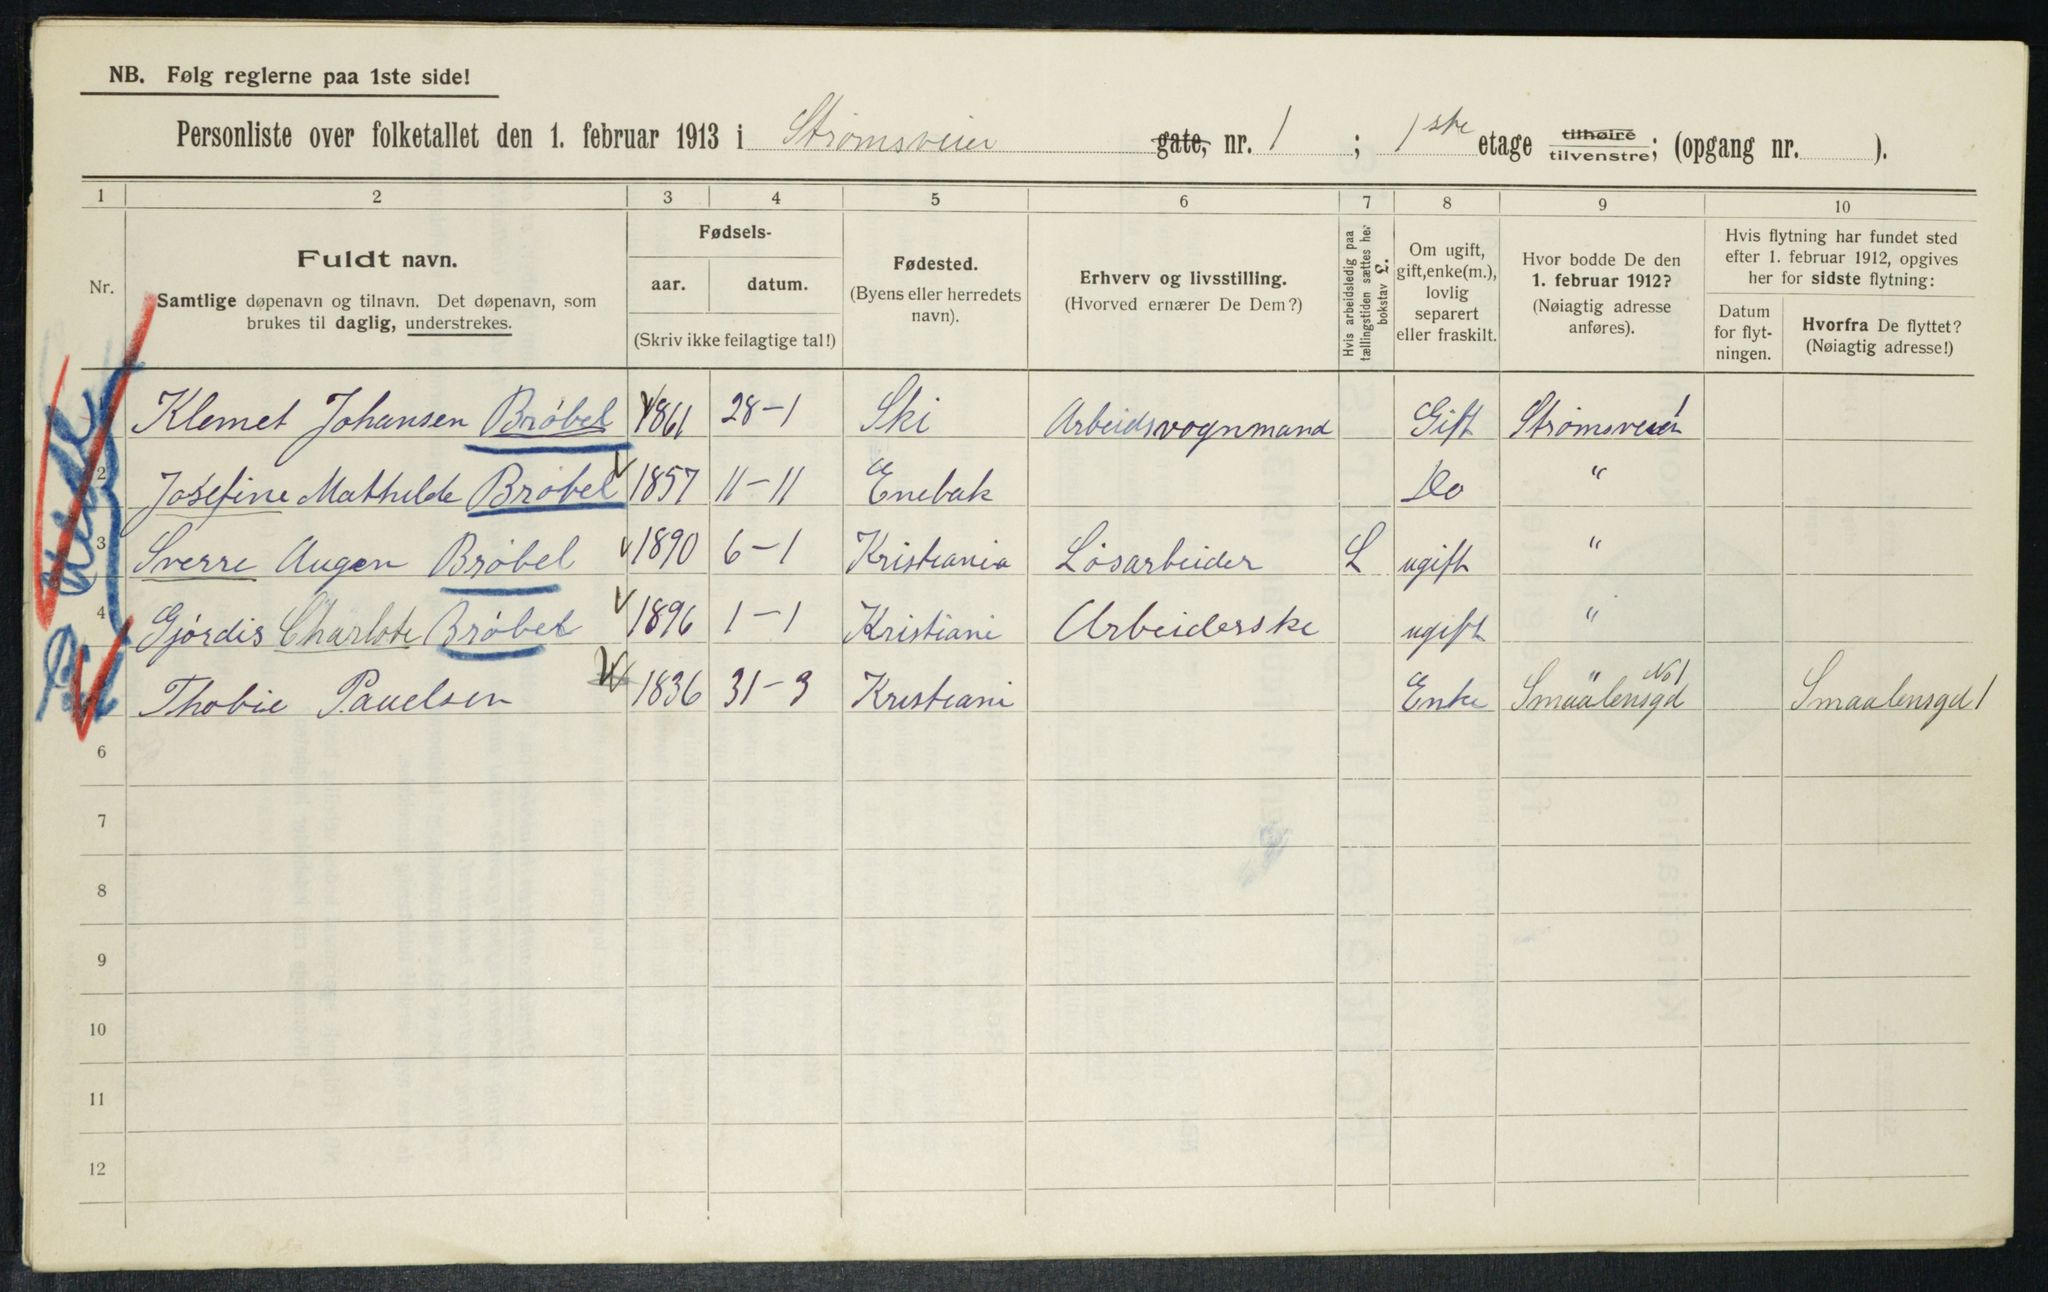 NB. Følg reglerne paa 1ste side!
Personliste over folketallet den 1. februar 1913 i Strømsveien gate, nr. 1 ; 1ste etage tilhøire tilvenstre; (opgang nr. ).
1 2 3 4 5 6 7 8 9 10
Nr.
Fuldt navn.
Samtlige døpenavn og tilnavn. Det døpenavn, som
brukes til daglig, understrekes.
Fødsels-
aar. datum.
(Skriv ikke feilagtige tal!)
Fødested.
(Byens eller herredets
navn).
Erhverv og livsstilling.
(Hvorved ernærer De Dem?)
Hvis arbeidsledig paa
tællingstiden sættes her
bokstav L.
Om ugift,
gift, enke(m.),
lovlig
separert
eller fraskilt.
Hvor bodde De den
1. februar 1912?
(Nøiagtig adresse
anføres).
Hvis flytning har fundet sted
efter 1. februar 1912, opgives
her for sidste flytning:
Datum
for flyt-
ningen.
Hvorfra De flyttet?
(Nøiagtig adresse!)
Klemet Johansen Brøbel 1861 28-1 Ski Arbeidsvognmand Gift Strømsveien 1
2 Josefine Mathilde Brøbel 1857 11-11 Enebak Do "
3 Sverre Augen Brøbel 1890 6-1 Kristiania Løsarbeider L ugift "
4 Gjørdis Charlote Brøbel 1896 1-1 Kristiani Arbeiderske ugift "
Thobie Pauelsen 1836 31-3 Kristiani Enke Smaalensgd No 1 Smaalensgd 1
6
7
8
9
10
11
12